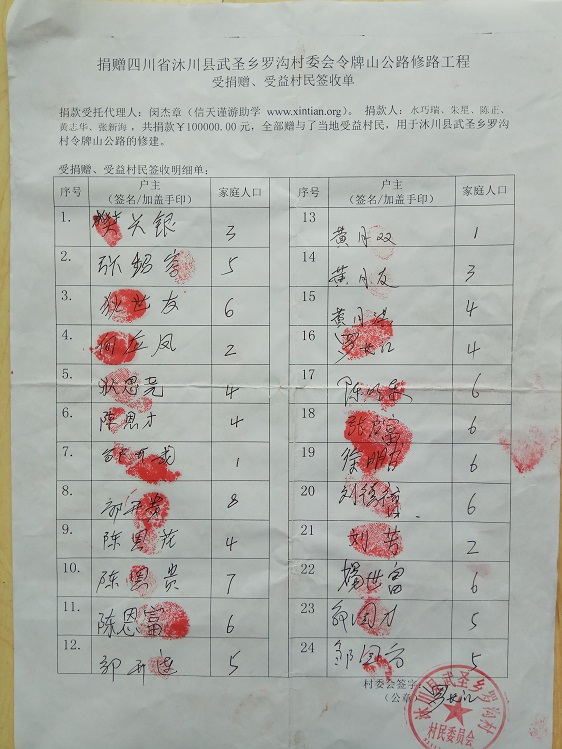 捐赠四川省沐川县武圣乡罗沟村委会令牌山公路修路工程
受捐赠、受益村民签收单
捐款受托代理人：闵杰章（信天谨游助学 www.xintian.org）。 捐款人：水巧瑞、朱星、陈正、
黄志华、张新海，共捐款￥100000.00 元，全部赠与了当地受益村民，用于沐川县武圣乡罗沟
村令牌山公路的修建。
受捐赠、受益村民签收明细单：
序号 户主 家庭人口 序号 户主 家庭人口
（签名/加盖手印） （签名/加盖手印）
1. 关银 3 13 黄月双 1
2. 5 14 黄月友 3
3. 友 6 15 黄月 4
4. 凤 2 16 罗 4
5. 狄恩尧 4 17 陈 6
6. 陈恩才 4 18 张 6
7. 1 19 徐 6
8. 8 20 刘 6
9. 陈恩 4 21 刘芳 2
10. 陈恩贵 7 22 杨世富 6
11. 陈恩富 6 23 国才 5
12. 5 24 邹国 5
村委会签字：
（公章）
沐川县武圣乡罗沟村
村民委员会